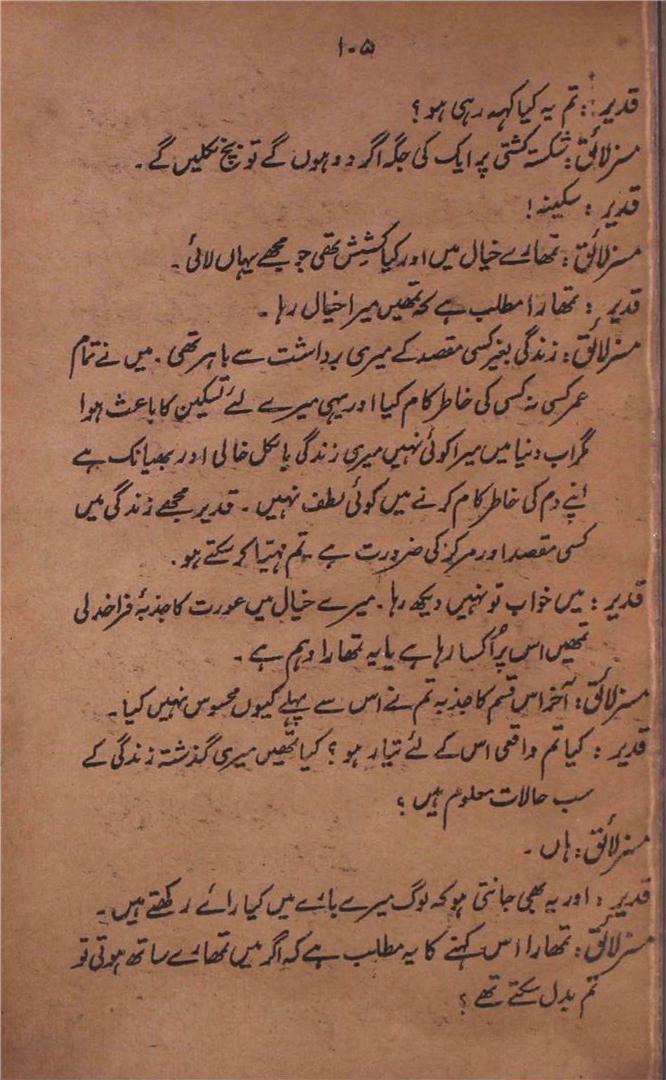 ۱۰۵
قدیر : تم یہ کیا کہہ رہی ہو ؟
مسز لائق : شکستہ کشتی پر ایک کی جگہ اگر دو ہوں گے تو بچ نکلیں گے ۔
قدیر : سکینہ !
مسز لائق : تمھارے خیال میں اور کیا کشش تھی جو مجھے یہاں لائی ۔
قدیر : تمھارا مطلب ہے کہ تمھیں میرا خیال رہا ۔
مسز لائق : زندگی بغیر کسی مقصد کے میری برداشت سے باہر تھی ۔ میں نے تمام
عمر کسی نہ کسی کی خاطر کام کیا اور یہی میرے لئے تسکین کا باعث ہوا
مگر اب دنیا میں میرا کوئی نہیں میری زندگی بالکل خالی اور بھیانک ہے
اپنے دم کی خاطر کام کرنے میں کوئی لطف نہیں ۔ قدیر مجھے زندگی میں
کسی مقصد اور مرکز کی ضرورت ہے ۔ تم مہیا کر سکتے ہو ۔
قدیر : میں خواب تو نہیں دیکھ رہا ۔ میرے خیال میں عورت کا جذبۂ فراخدلی
تمھیں اس پر اُکسا رہا ہے یا یہ تمھارا وہم ہے ۔
مسز لائق : آخر اس قسم کا جذبہ تم نے اس سے پہلے کیوں محسوس نہیں کیا ۔
قدیر : کیا تم واقعی اس کے لئے تیار ہو ؟ کیا تمھیں میری گذشتہ زندگی کے
سب حالات معلوم ہیں ؟
مسز لائق : ہاں ۔
قدیر : اور یہ بھی جانتی ہو کہ لوگ میرے بارے میں کیا رائے رکھتے ہیں ۔
مسز لائق : تمھارا اس کہنے کا یہ مطلب ہے کہ اگر میں تمھارے ساتھ ہوتی تو
تم بدل سکتے تھے ؟